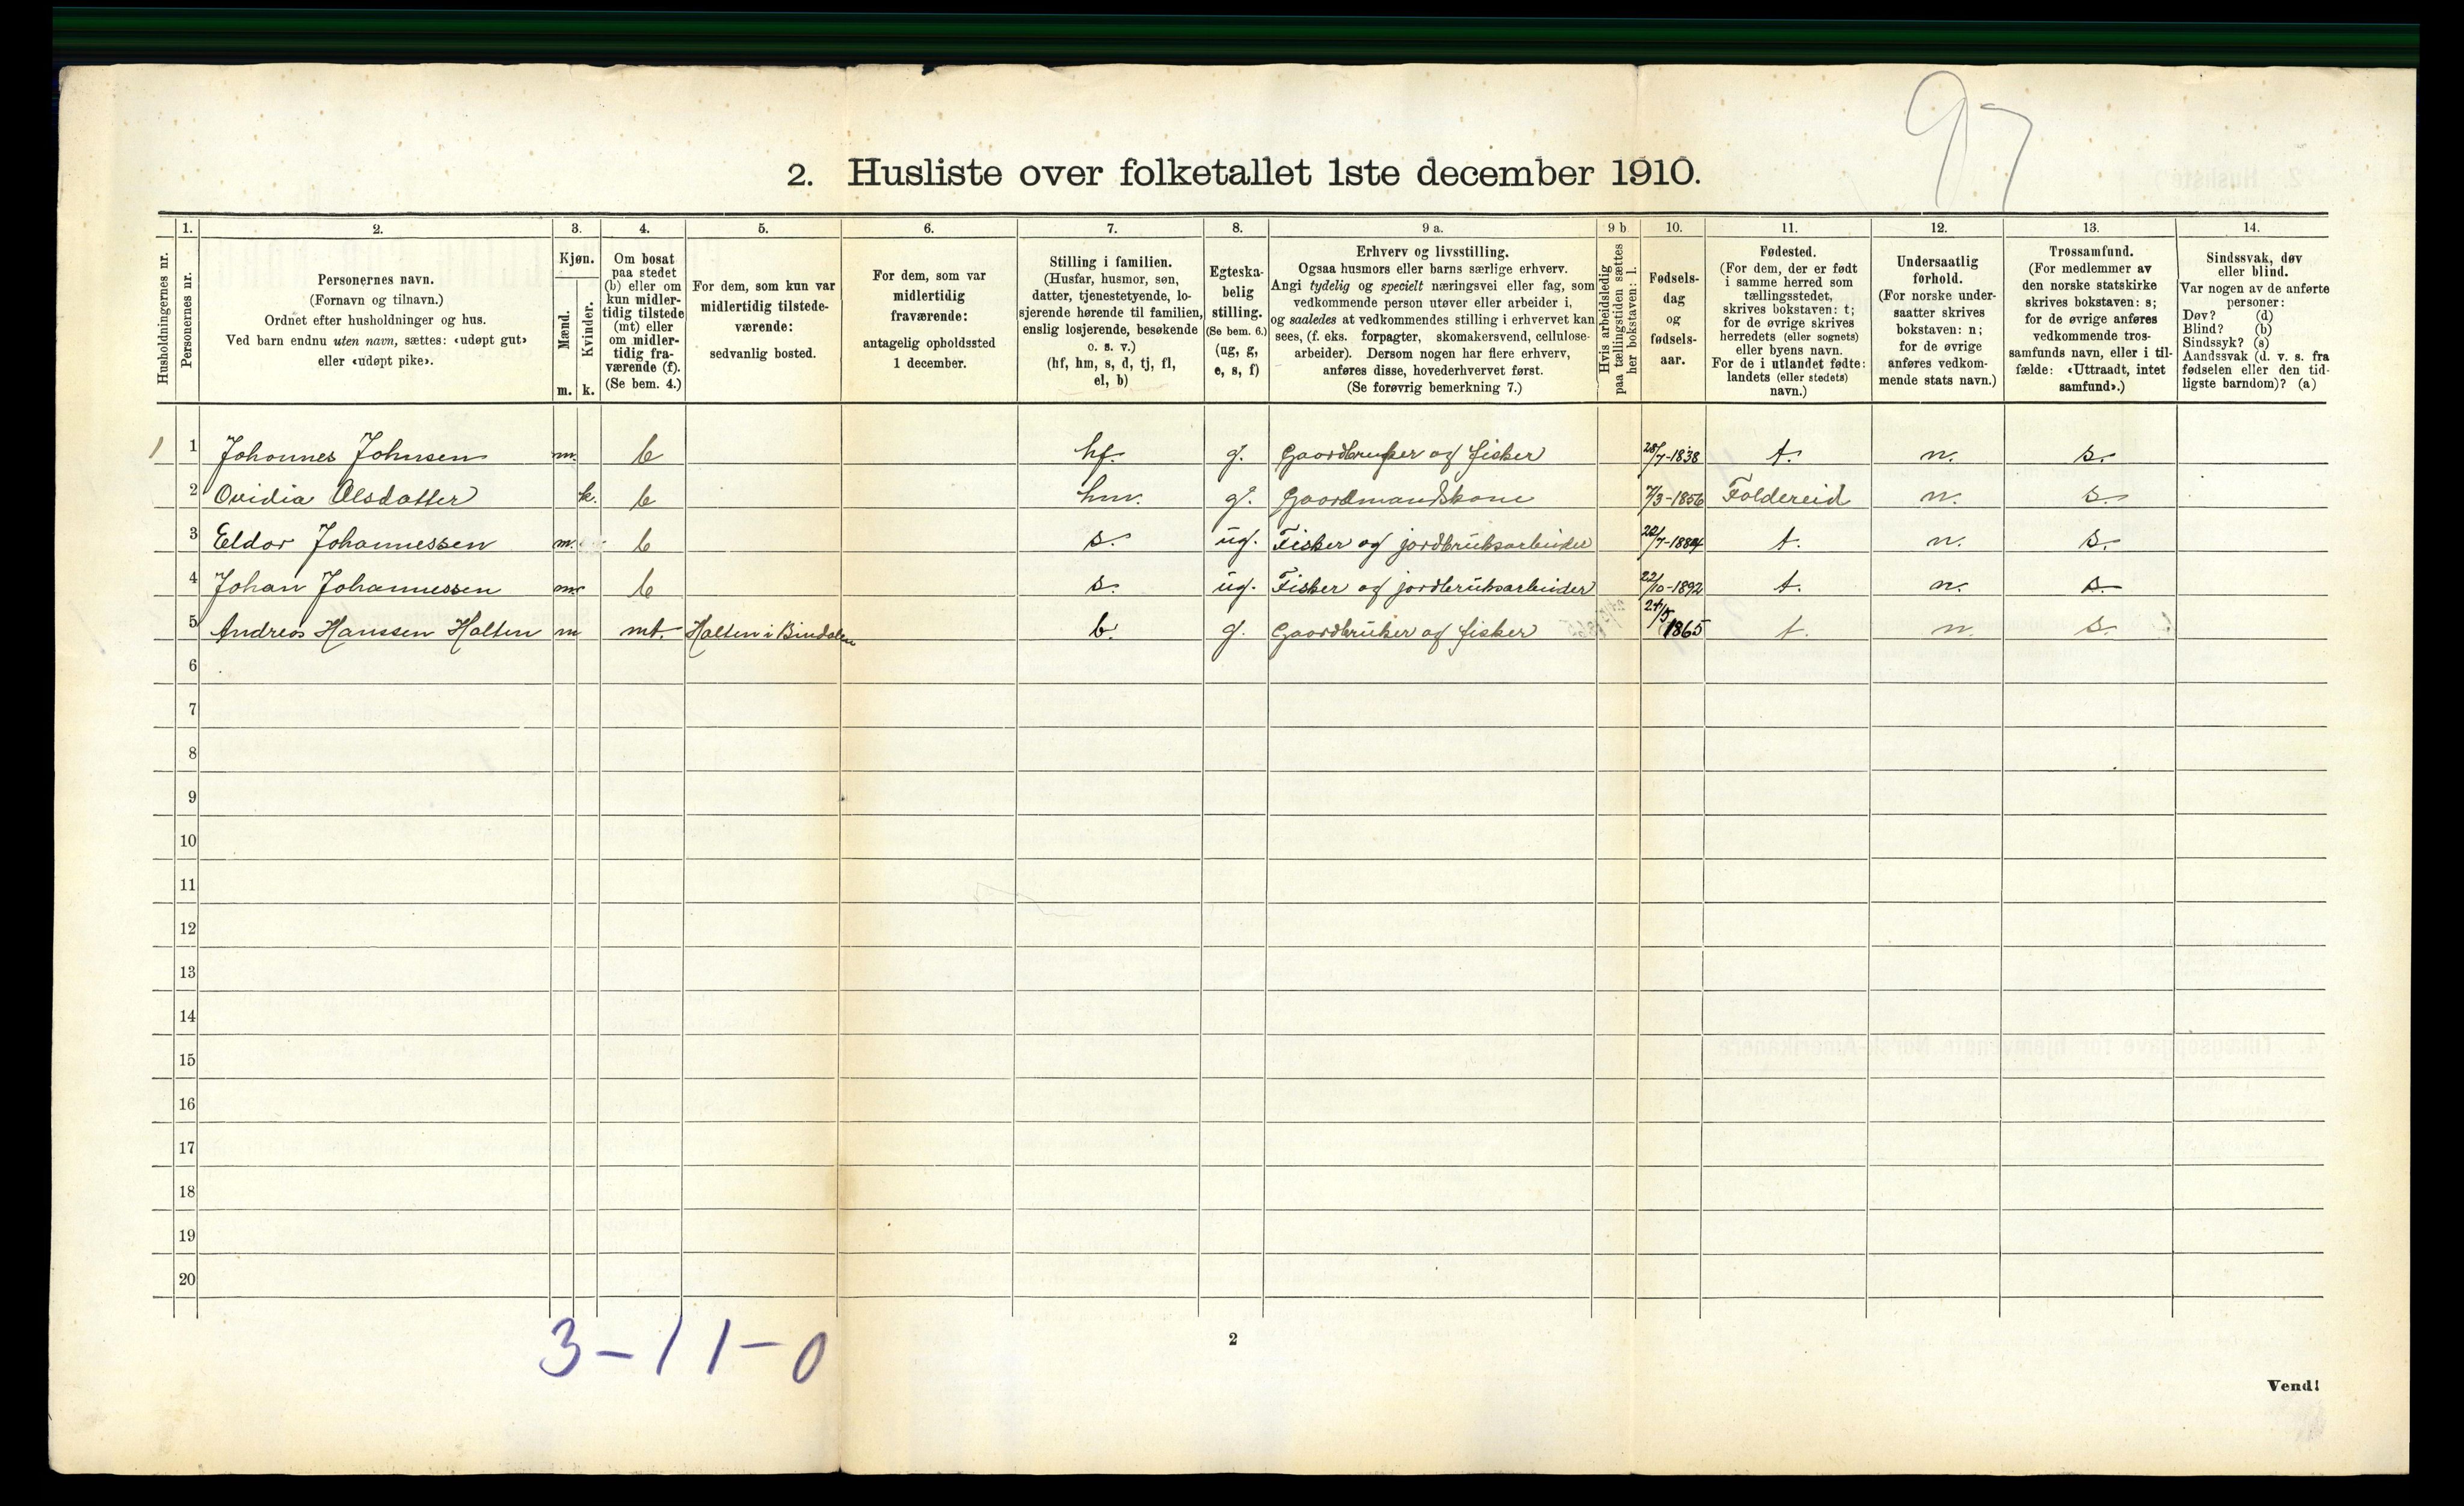 97
2. Husliste over folketallet 1ste december 1910.
Husholdningernes nr.
1.
Personernes nr.
2.
Personernes navn.
(Fornavn og tilnavn.)
Ordnet efter husholdninger og hus.
Ved barn endnu uten navn, sættes: «udøpt gut»
eller «udøpt pike».
3.
Kjøn.
Mænd.
Kvinder.
m. k.
4.
Om bosat
paa stedet
(b) eller om
kun midler-
tidig tilstede
(mt) eller
om midler-
tidig fra-
værende (f).
(Se bem. 4.)
5.
For dem, som kun var
midlertidig tilstede-
værende:
sedvanlig bosted.
6.
For dem, som var
midlertidig
fraværende:
antagelig opholdssted
1 december.
7.
Stilling i familien.
(Husfar, husmor, søn,
datter, tjenestetyende, lo-
sjerende hørende til familien,
enslig losjerende, besøkende
o. s. v.)
(hf, hm, s, d, tj, fl,
el, b)
8.
Egteska-
belig
stilling.
(Se bem. 6.)
(ug, g,
e, s, f)
9 a.
Erhverv og livsstilling.
Ogsaa husmors eller barns særlige erhverv.
Angi tydelig og specielt næringsvei eller fag, som
vedkommende person utøver eller arbeider i,
og saaledes at vedkommendes stilling i erhvervet kan
sees, (f. eks. forpagter, skomakersvend, cellulose-
arbeider). Dersom nogen har flere erhverv,
anføres disse, hovederhvervet først.
(Se forøvrig bemerkning 7.)
9 b
Hvis arbeidsledig
paa tællingstiden sættes
her bokstaven: l.
10.
Fødsels-
dag
og
fødsels-
aar.
11.
Fødested.
(For dem, der er født
i samme herred som
tællingsstedet,
skrives bokstaven: t;
for de øvrige skrives
herredets (eller sognets)
eller byens navn.
For de i utlandet fødte:
landets (eller stedets)
navn.)
12.
Undersaatlig
forhold.
(For norske under-
saatter skrives
bokstaven: n;
for de øvrige
anføres vedkom-
mende stats navn.)
13.
Trossamfund.
(For medlemmer av
den norske statskirke
skrives bokstaven: s;
for de øvrige anføres
vedkommende tros-
samfunds navn, eller i til-
fælde: «Uttraadt, intet
samfund».)
14.
Sindssvak, døv
eller blind.
Var nogen av de anførte
personer:
Døv? (d)
Blind? (b)
Sindssyk? (s)
Aandssvak (d. v. s. fra
fødselen eller den tid-
ligste barndom)? (a)
1 1 Johannes Johnsen m. b hf. g. Gaardbruker og fisker 28/7-1838 t. n. s.
2 Ovidia Olsdatter k. b hm. g. Gaardmandskone 7/3-1856 Foldereid n. s.
3 Eldor Johannessen m. b s. ug. Fisker og jordbruksarbeider t. n. s.
4 Johan Johannessen m. b s. ug. Fisker og jordbruksarbeider 22/10-1892 t. n. s.
5 Andreas Hanssen Holten m mt. Holten i Bindalen b. g. Gaardbruker og fisker 1865 t. n. s.
6
7
8
9
10
11
12
13
14
15
16
17
18
19
20
3-11-0
2
Vend!